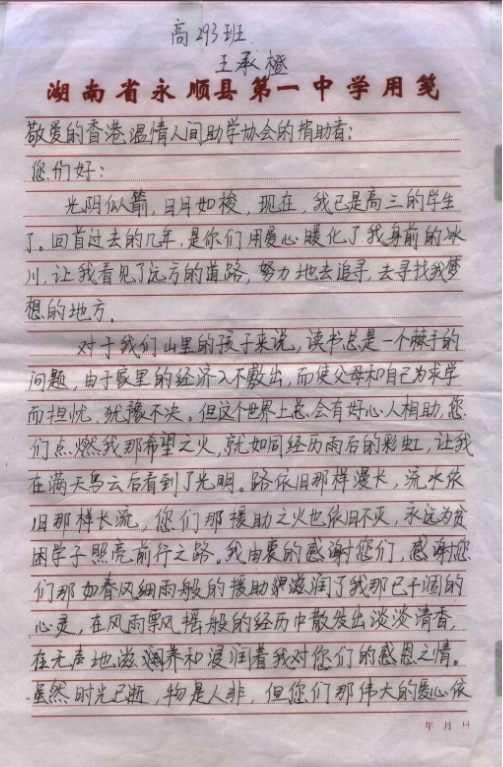 高293班
王承极
湖南省永顺县第一中学用笺
敬爱的香港温情人间助学协会的捐助者:
您们好:
光阴似箭,日月如梭,现在,我已是高三的学生
了。回首过去的几年,是你们用爱心暖化了我身前的冰
川,让我看见了远方的道路,努力地去追寻,去寻找我梦
想的地方。
对于我们山里的孩子来说,读书总是一个棘手的
问题,由于家里的经济入不敷出,而使父母和自己为求学
而担忧,犹豫不决。但这个世界上总会有好心人相助,您
们点燃我那希望之火,就如同经历雨后的彩虹,让我
在满天乌云后看到了光明。路依旧那样漫长,流水依
旧那样长流,您们那援助之火也依旧不灭,永远为贫
困学子照亮前行之路。我由衷的感谢您们,感谢您
们那如春风细雨般的援助滋润了我那已干涸的
心灵,在风雨飘摇般的经历中散发出淡淡清香,
在无声地滋润养和浸润着我对你们的感恩之情。
虽然时光已逝,物是人非,但您们那伟大的爱心依
年 月 日